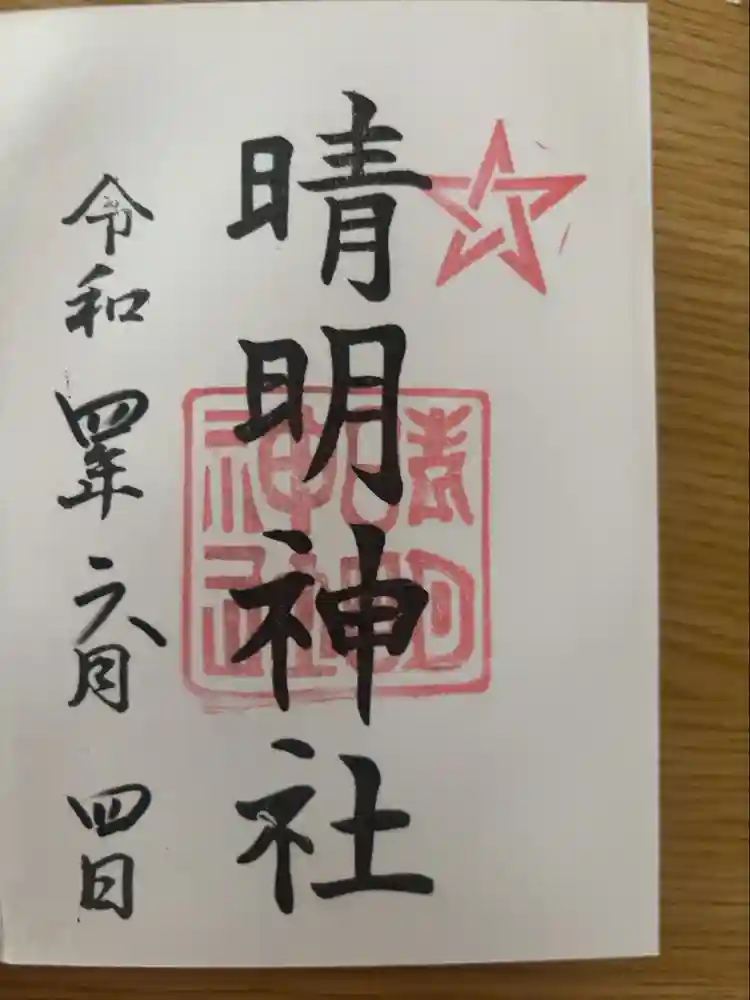 晴明神社
晴明
神社
令和四年六月四日